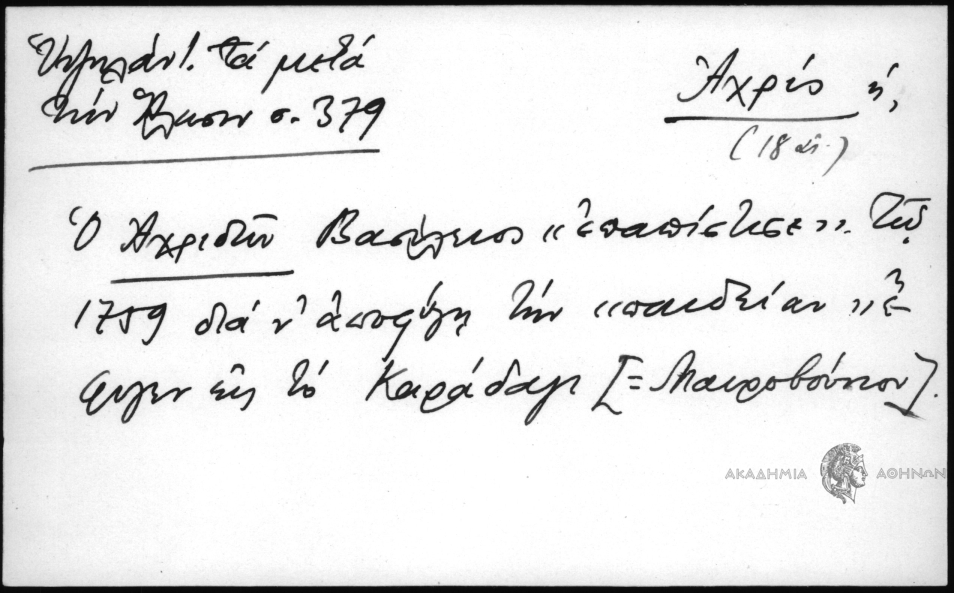 Ὑψηλάντ. Τά μετά
τήν Ἅλωσιν σ. 379
Ἀχρίς ἡ,
(18 αἰ.)
Ὁ Ἀχριδῶν Βασίλειος «ἐπαπίστησε». Τῷ
1759 διά ν' ἀποφύγῃ τήν «παιδείαν» ἔ-
φυγεν εἰς τό Καράδαγι [= Μαυροβούνιον].
ΑΚΑΔΗΜΙΑ ΑΘΗΝΩΝ